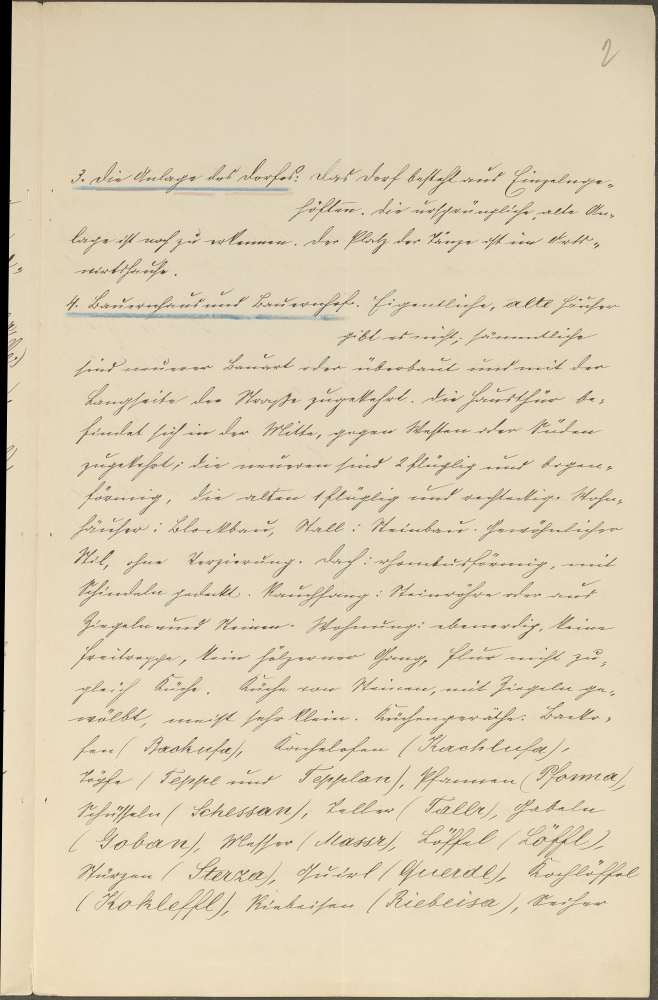 2
3. Die Anlage des Dorfes: Das Dorf besteht aus Einzelnge-
höften. Die ursprüngliche, alte An-
lage ist noch zu erkennen. Der Platz der Tänze ist im Orts-
wirtshause.
4. Bauernhaus und Bauernhof. Eigentliche, alte Häuser
gibt es nicht; sämmtliche
sind neuerer Bauart oder überbaut und mit der
Langseite der Straße zugekehrt. Die Hausthür be-
findet sich in der Mitte, gegen Westen oder Süden
zugekehrt; die neueren sind 2flüglig und bogen-
förmig, die alten 1flüglig und rechteckig. Wohn-
häuser: Blockbau, Stall: Steinbau. Gewöhnlicher
Stil, ohne Verzierung. Dach: rhombusförmig, mit
Schindeln gedeckt. Rauchfang: Steinröhre oder aus
Ziegeln und Steinen. Wohnung: ebenerdig, keine
Freitreppe, kein hölzerner Gang, Flur nicht zu-
gleich Küche. Küche von Steinen, mit Ziegeln ge-
wölbt, meist sehr klein. Küchengeräthe: Backo-
fen (Backufa), Kachelofen (Kachlufa),
Töpfe (Teppel und Tepplan), Pfannen (Pfonna),
Schüsseln (Schessan), Teller (Tallr), Gabeln
(Goban), Messer (Massr), Löffel (Löffl),
Stürzen (Sterza), Quirl (Querdl), Kochlöffel
(Kokleffl), Riebeisen (Riebeisa), Seiher